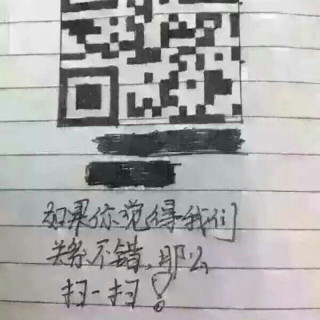 如果你觉得我们
关系不错，那么
扫一扫！